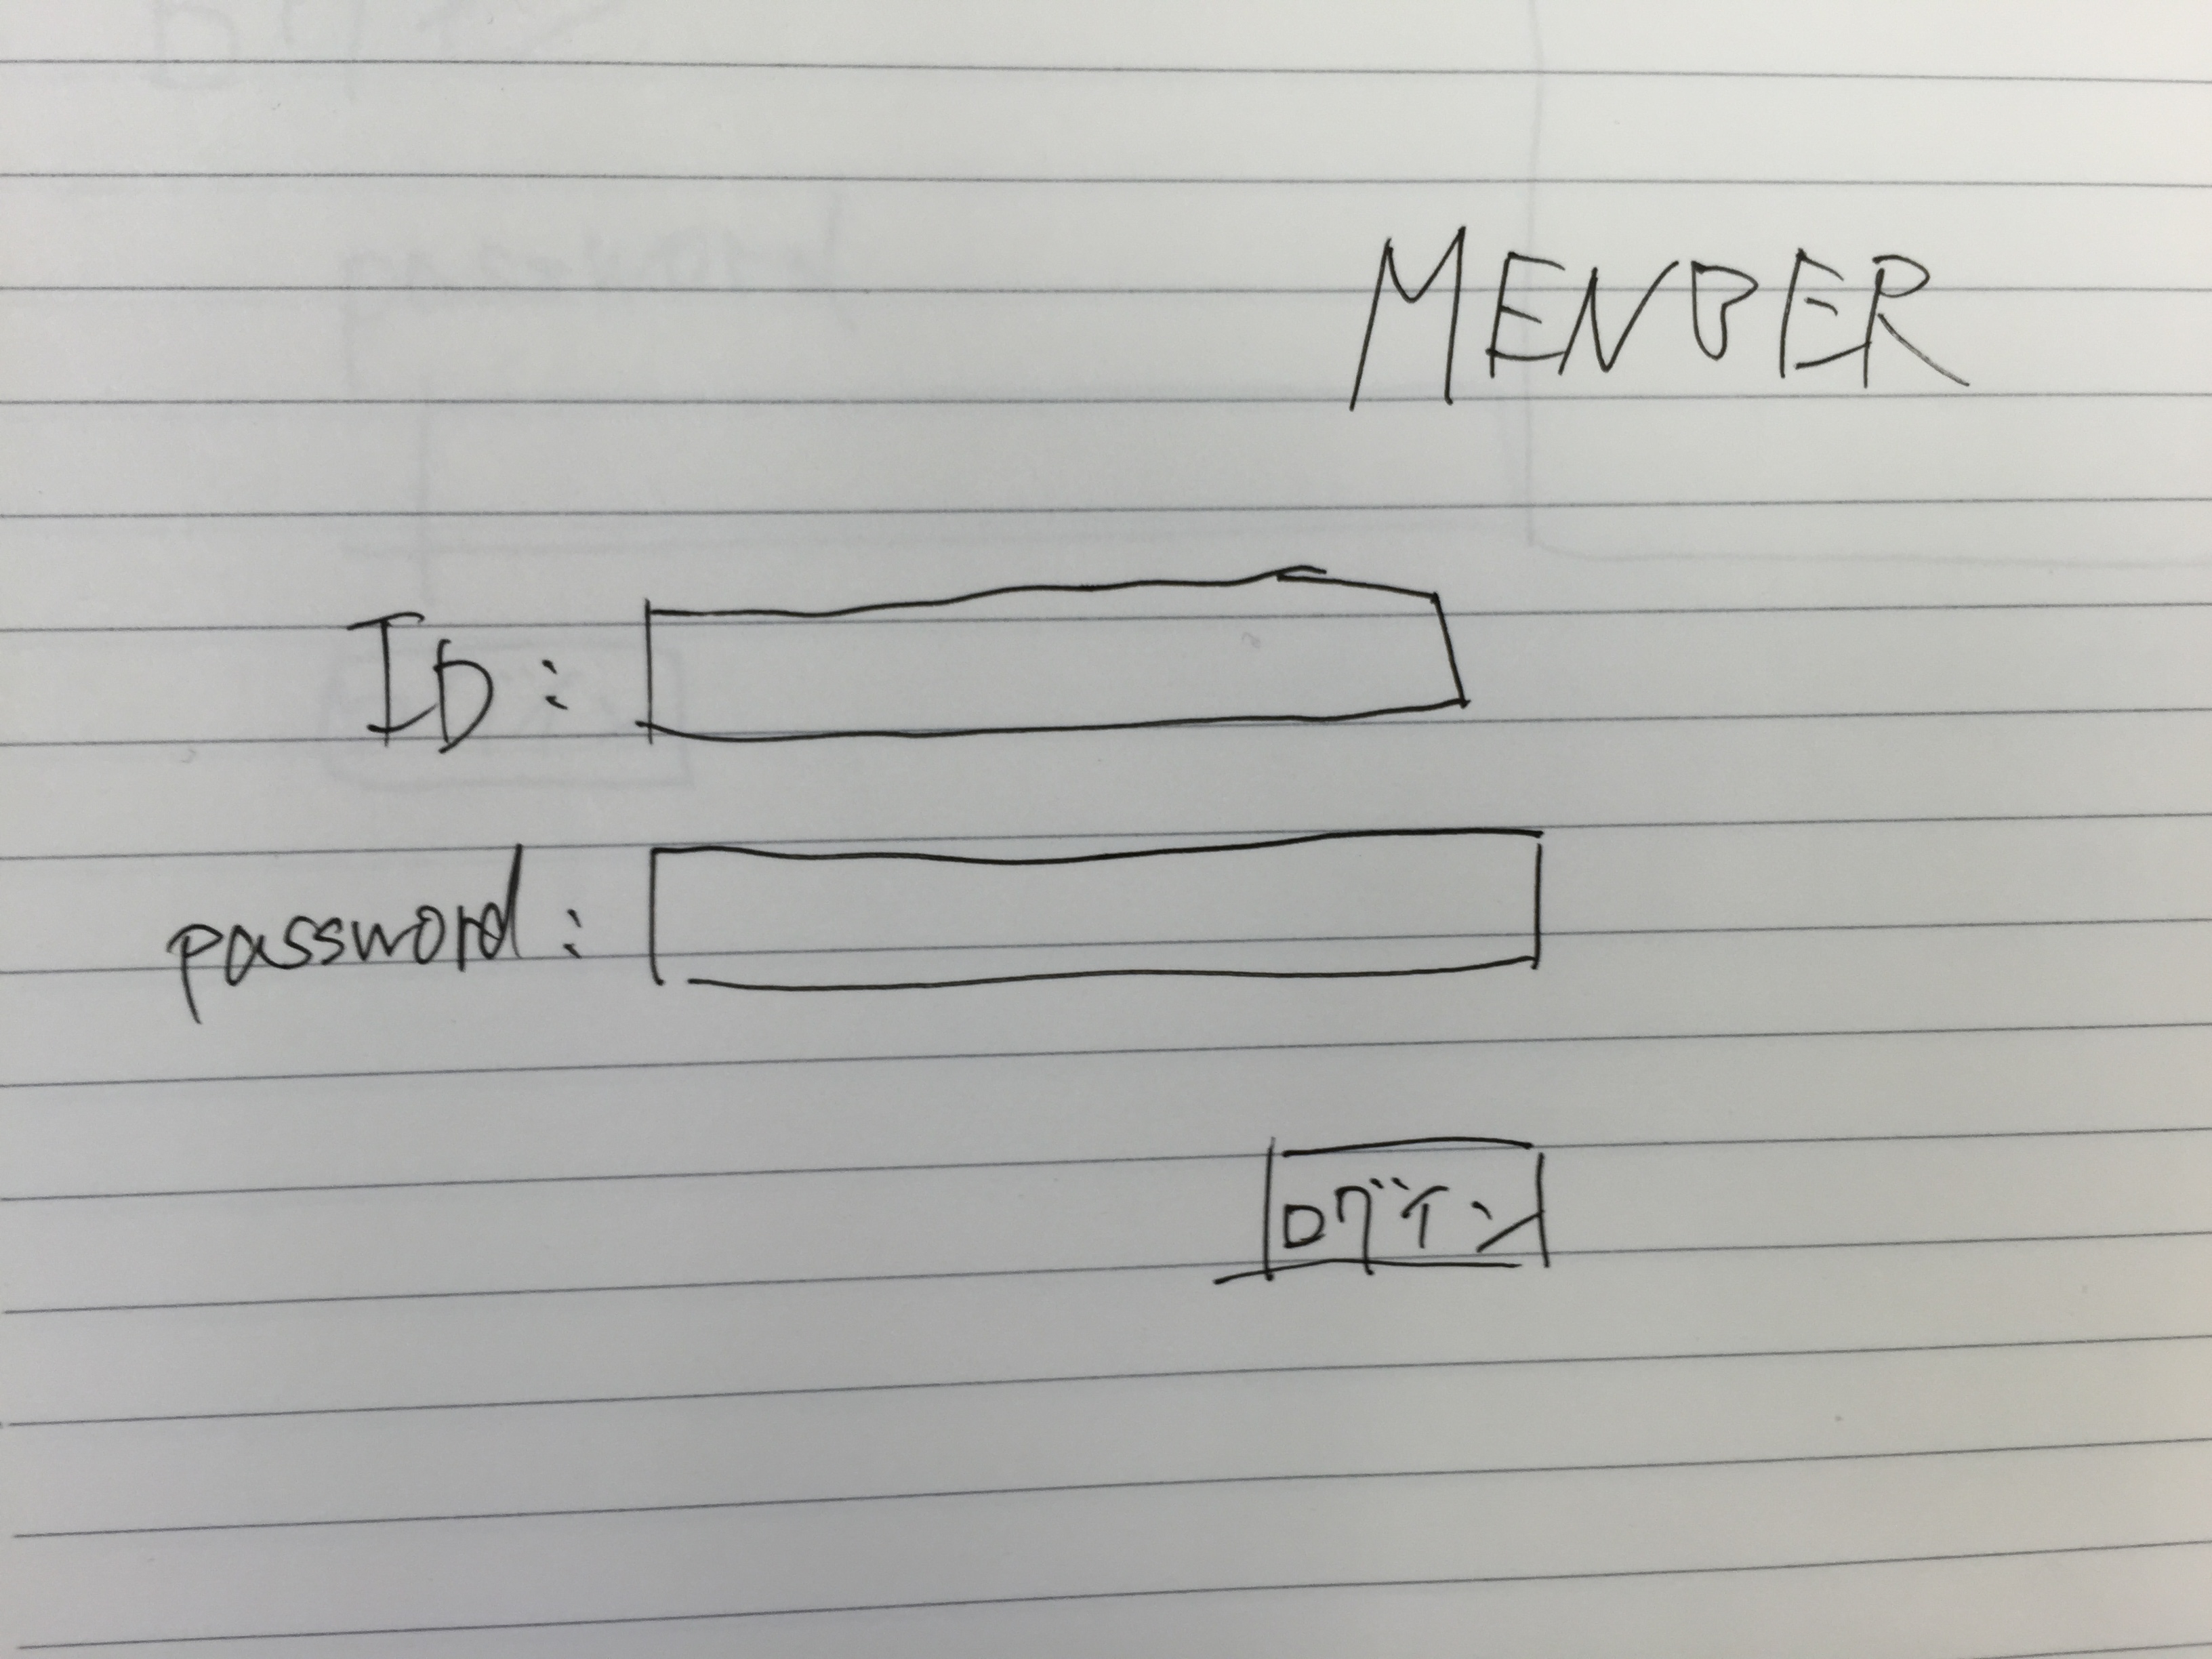 MENBER
ID:
password:
ログイン